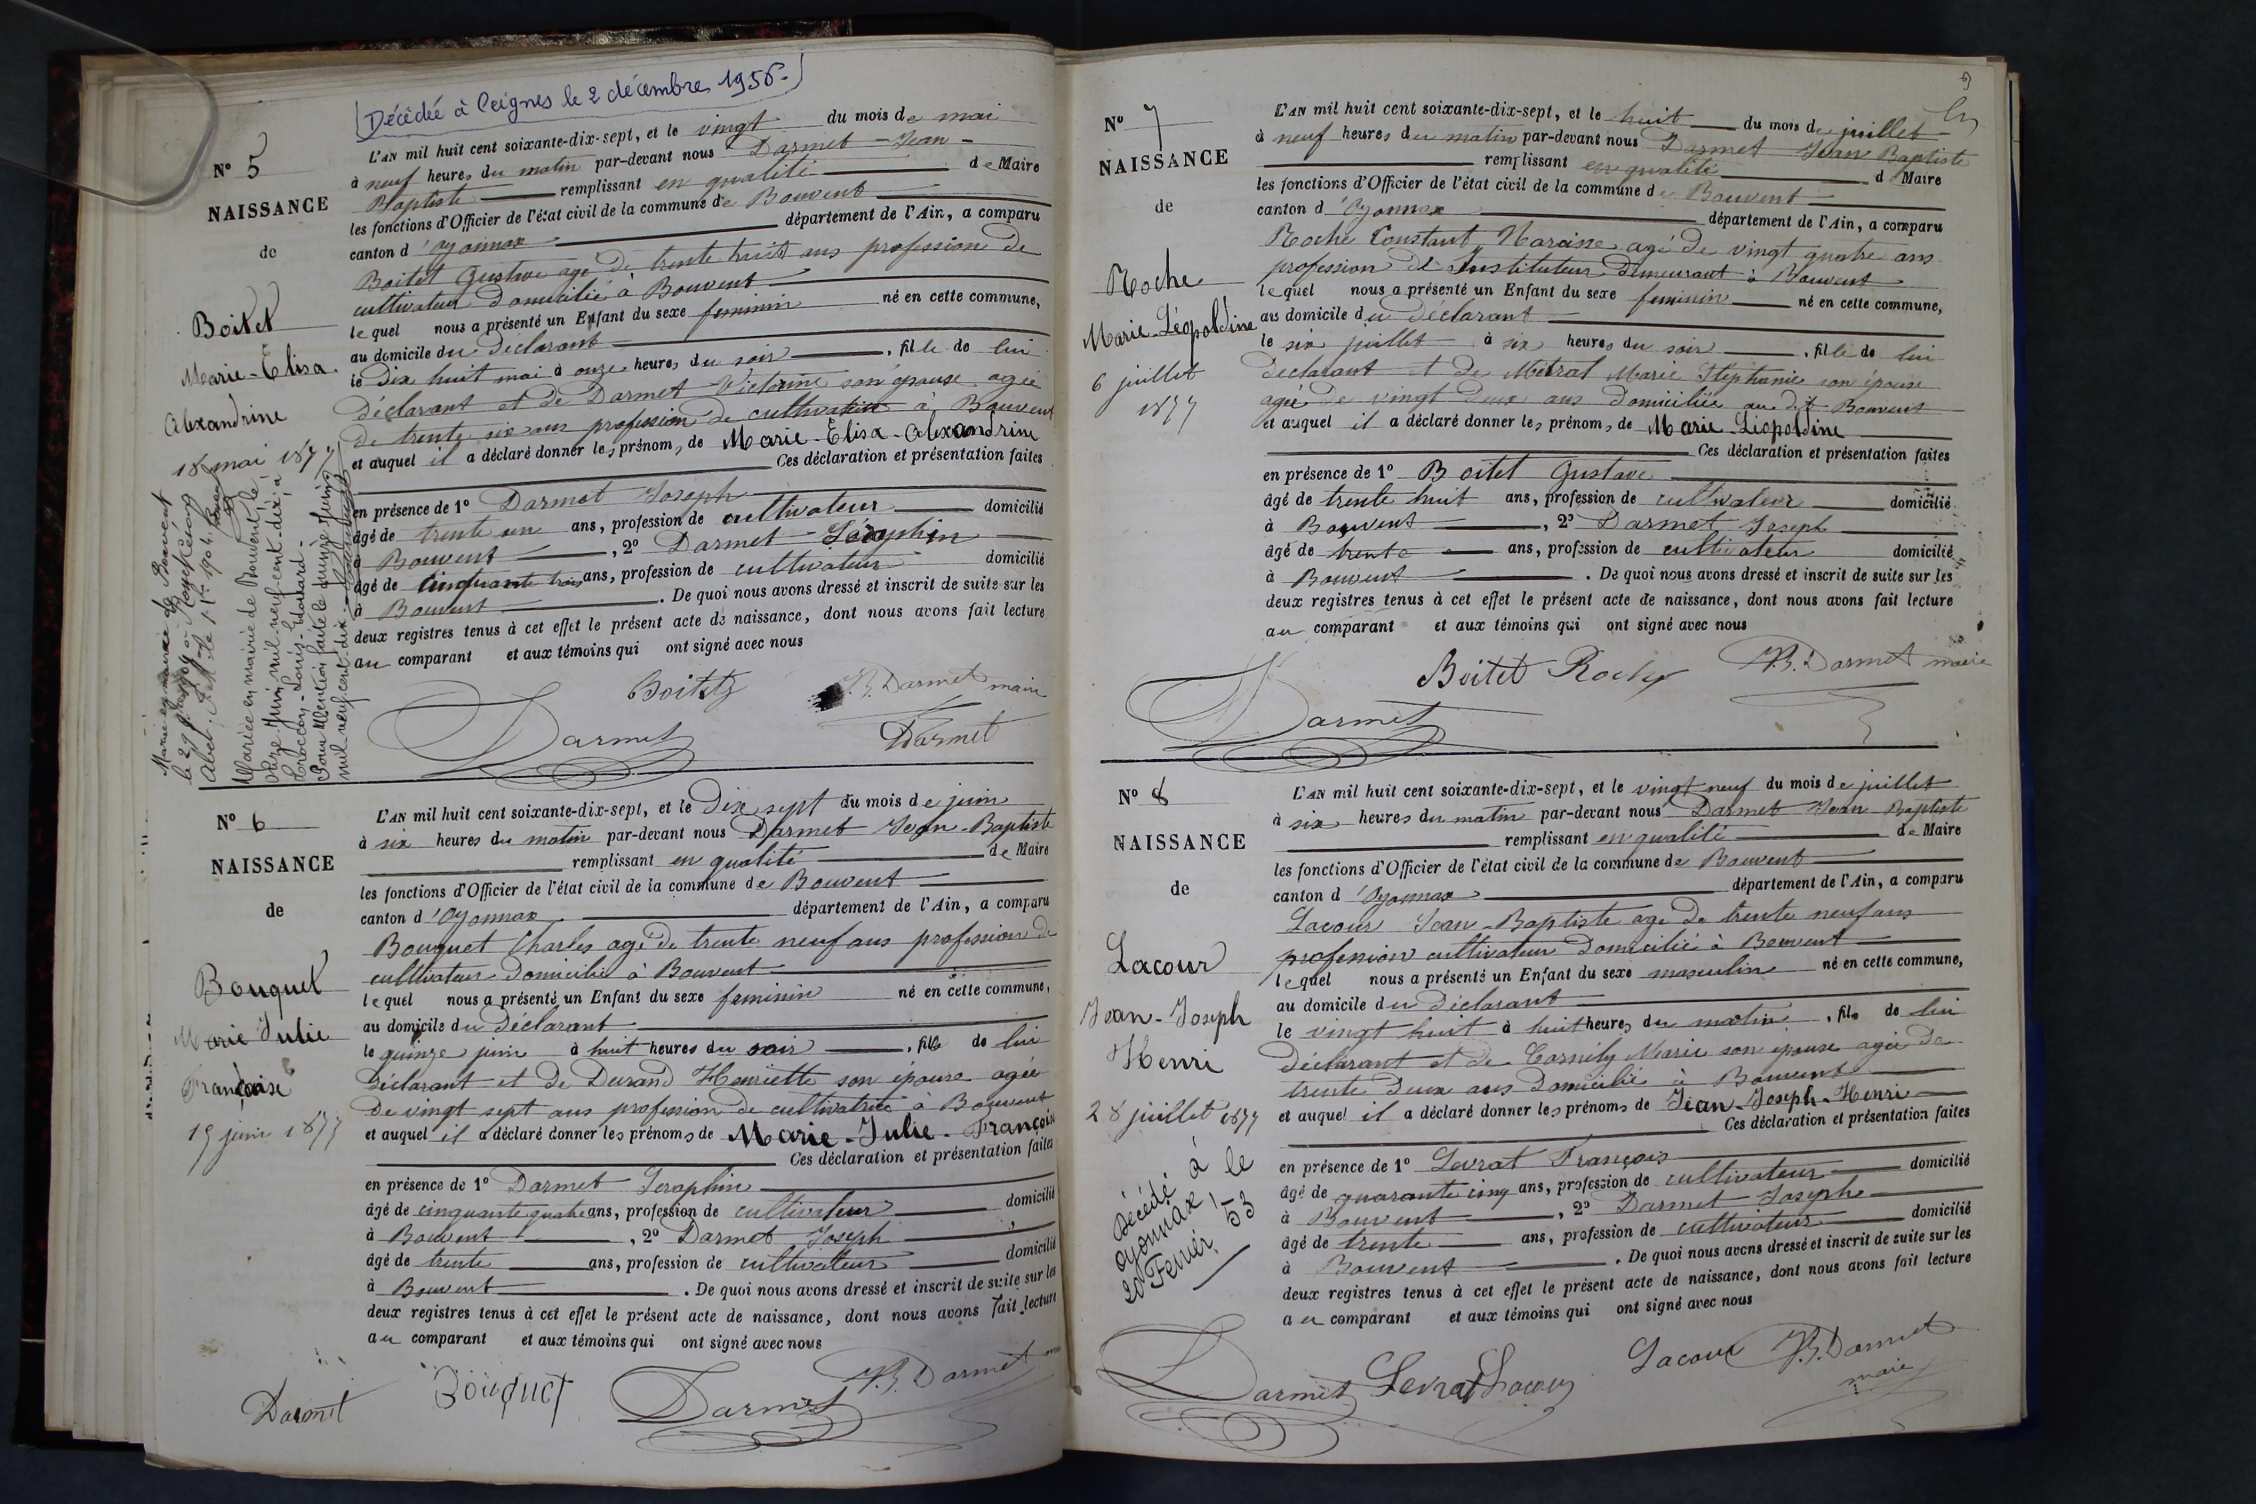 (Décédée à Ceignes le 2 décembre 1956.)
N° 5
NAISSANCE
de
Boitet
Marie-Elisa
Alexandrine
18 mai 1877
Mariée en mairie de Bouvent
Mariée en mairie de Bouvent, le
onze Juin mil-neuf-cent-dix, à
Louis-Edouard.
Pour Mention faite le quinze Juin
mil-neuf-cent-dix.
L'AN mil huit cent soixante-dix-sept, et le vingt du mois de mai
à neuf heures du matin par-devant nous Darmet Jean-
Baptiste remplissant en qualité de Maire
les fonctions d'Officier de l'état civil de la commune de Bouvent
canton d'Oyonnax département de l'Ain, a comparu
Boitet Gustave agé de trente huit ans profession de
cultivateur domicilié à Bouvent
lequel nous a présenté un Enfant du sexe feminin né en cette commune,
au domicile du Déclarant
le Dix huit mai à onze heures du soir, fille de lui
déclarant et de Darmet Victorine son épouse agée
de trente six ans profession de cultivatrice à Bouvent
et auquel il a déclaré donner les prénoms de Marie-Elisa-Alexandrine
Ces déclaration et présentation faites
en présence de 1° Darmet Joseph
âgé de trente un ans, profession de cultivateur domicilié
à Bouvent, 2° Darmet Séraphin
âgé de Cinquante trois ans, profession de cultivateur domicilié
à Bouvent. De quoi nous avons dressé et inscrit de suite sur les
deux registres tenus à cet effet le présent acte de naissance, dont nous avons fait lecture
au comparant et aux témoins qui ont signé avec nous
Boitet J.B. Darmet maire
Darmet Darmet
N° 6
NAISSANCE
de
Bouquet
Marie Julie
Françoise
15 juin 1877
L'AN mil huit cent soixante-dix-sept, et le Dix sept du mois de juin
à six heures du matin par-devant nous Darmet Jean-Baptiste
remplissant en qualité de Maire
les fonctions d'Officier de l'état civil de la commune de Bouvent
canton d'Oyonnax département de l'Ain, a comparu
Bouquet Charles agé de trente neuf ans profession de
cultivateur domicilié à Bouvent
lequel nous a présenté un Enfant du sexe feminin né en cette commune,
au domicile du Déclarant
le quinze juin à huit heures du soir, fille de lui
déclarant et de Durand Henriette son épouse agée
de vingt sept ans profession de cultivatrice à Bouvent
et auquel il a déclaré donner les prénoms de Marie-Julie-Françoise
Ces déclaration et présentation faites
en présence de 1° Darmet Seraphin
âgé de cinquante quatre ans, profession de cultivateur domicilié
à Bouvent, 2° Darmet Joseph
âgé de trente ans, profession de cultivateur domicilié
à Bouvent. De quoi nous avons dressé et inscrit de suite sur les
deux registres tenus à cet effet le présent acte de naissance, dont nous avons fait lecture
au comparant et aux témoins qui ont signé avec nous
Darmet Bouquet Darmet J.B. Darmet
N° 7
NAISSANCE
de
Roche
Marie-Léopoldine
6 juillet
1877
L'AN mil huit cent soixante-dix-sept, et le huit du mois de juillet
à neuf heures du matin par-devant nous Darmet Jean Baptiste
remplissant en qualité d Maire
les fonctions d'Officier de l'état civil de la commune de Bouvent
canton d'Oyonnax département de l'Ain, a comparu
Roche Constant Narcisse agé de vingt quatre ans
profession de Instituteur demeurant à Bouvent
lequel nous a présenté un Enfant du sexe feminin né en cette commune,
au domicile du déclarant
le six juillet à six heures du soir, fille de lui
declarant et de Métral Marie Stéphanie son épouse
agée de vingt deux ans domiciliée au dit Bouvent
et auquel il a déclaré donner les prénoms de Marie Léopoldine
Ces déclaration et présentation faites
en présence de 1° Boitet Gustave
âgé de trente huit ans, profession de cultivateur domicilié
à Bouvent, 2° Darmet Joseph
âgé de trente ans, profession de cultivateur domicilié
à Bouvent. De quoi nous avons dressé et inscrit de suite sur les
deux registres tenus à cet effet le présent acte de naissance, dont nous avons fait lecture
au comparant et aux témoins qui ont signé avec nous
Boitet Roche J.B. Darmet maire
Darmet
N° 8
NAISSANCE
de
Lacour
Jean-Joseph
Henri
28 juillet 1877
Décédé à
Oyonnax, le
20 Fevrier 53
L'AN mil huit cent soixante-dix-sept, et le vingt neuf du mois de juillet
à six heures du matin par-devant nous Darmet Jean Baptiste
remplissant en qualité de Maire
les fonctions d'Officier de l'état civil de la commune de Bouvent
canton d'Oyonnax département de l'Ain, a comparu
Lacour Jean-Baptiste age de trente neuf ans
profession cultivateur domicilié à Bouvent
lequel nous a présenté un Enfant du sexe masculin né en cette commune,
au domicile du Déclarant
le vingt huit à huit heures du matin, fils de lui
déclarant et de Marie son epouse agée de
trente deux ans domicilié à Bouvent
et auquel il a déclaré donner les prénoms de Jean-Joseph-Henri
Ces déclaration et présentation faites
en présence de 1° Levrat François
âgé de quarante cinq ans, profession de cultivateur domicilié
à Bouvent, 2° Darmet Joseph
âgé de trente ans, profession de cultivateur domicilié
à Bouvent. De quoi nous avons dressé et inscrit de suite sur les
deux registres tenus à cet effet le présent acte de naissance, dont nous avons fait lecture
au comparant et aux témoins qui ont signé avec nous
Darmet Levrat Lacour J.B. Darmet
maire